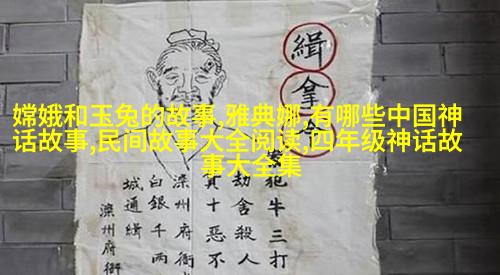 嫦娥和玉兔的故事,雅典娜,有哪些中国神
话故事,民间故事大全阅读,四年级神话故
事大全集
緝拿
犯牛三打
劫舍殺人
十惡不
滦州府衙
白銀千两
城通緝
滦州府衙